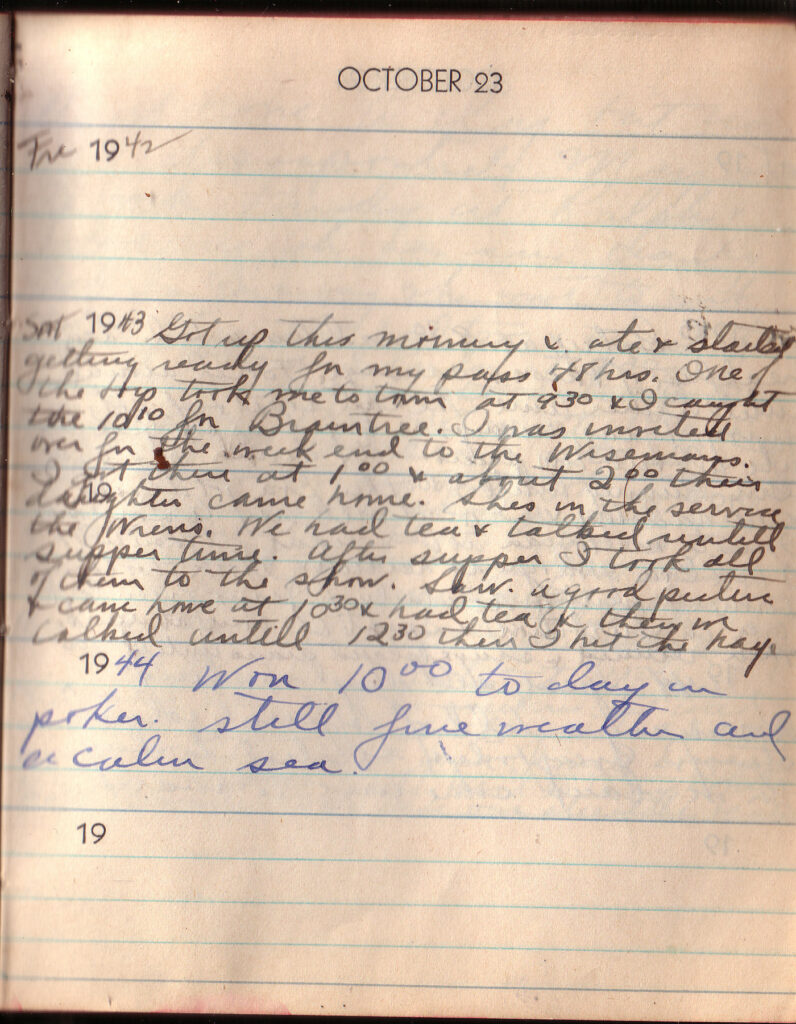 OCTOBER 23
Fri 1942
Sat 1943 Got up this morning & ate & started
getting ready for my pass 48 hrs. One of
the trip took me to town at 930 & I caught
the 1010 for Braintree. I was invited
over for the week end to the Wisemans.
I got there at 1 00 & about 2 00 their
19
daughter came home. Shes in the service
the Wrens. We had tea & talked untill
supper time. After supper I took all
of them to the show. Saw a good picture
& came home at 1030 & had tea &
talked untill 1230 then I hit the hay.
1944 Won 10 00 to day in
poker. still fine weather and
a calm sea.
19